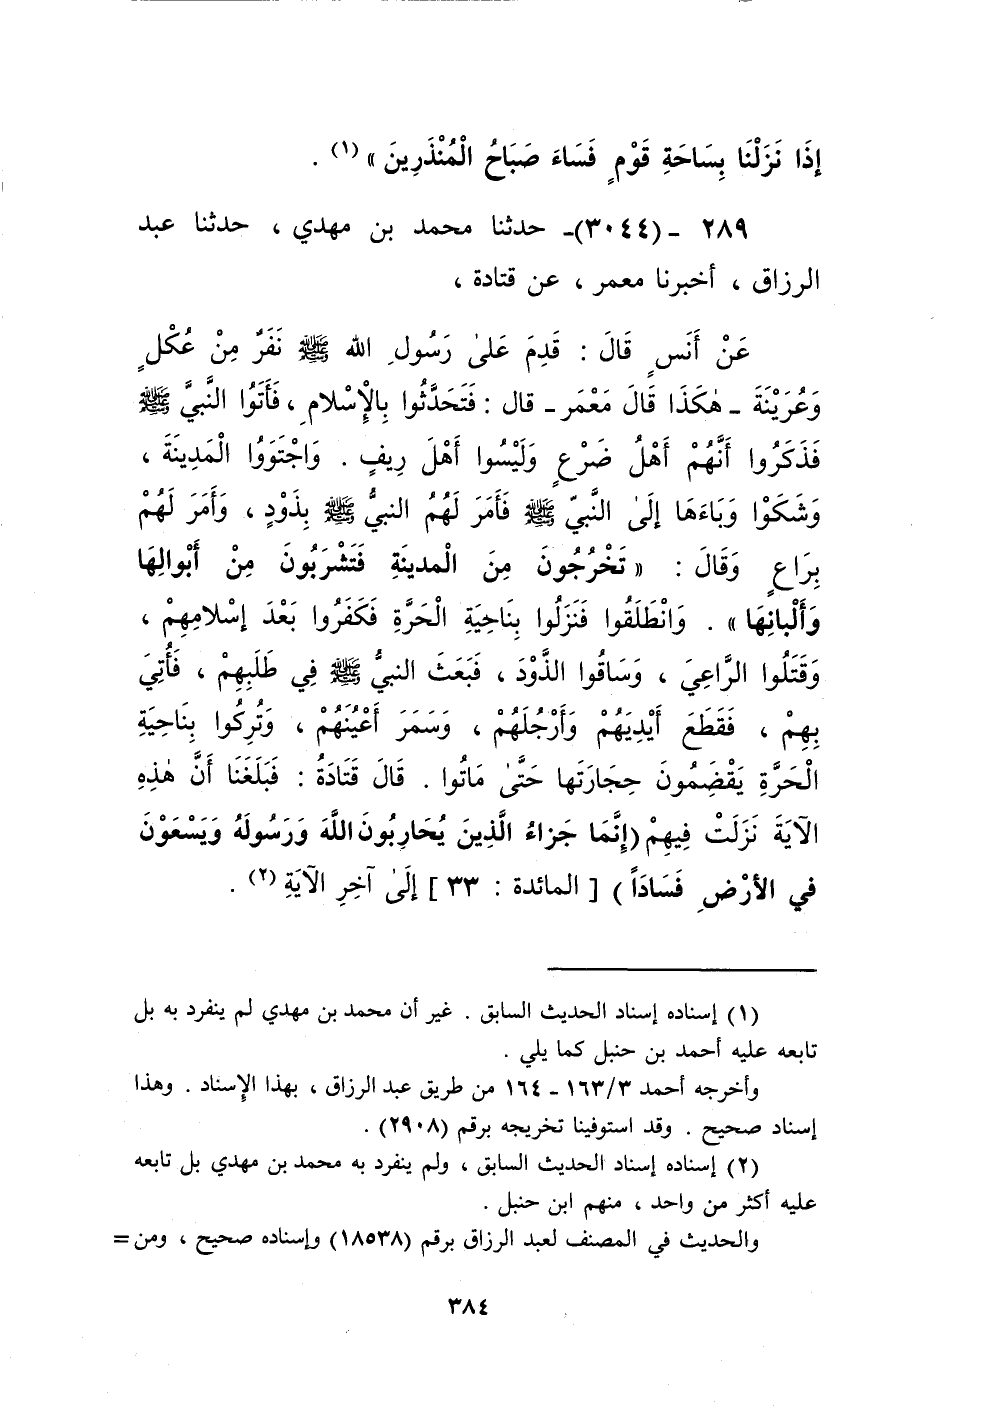 إذَا نَزَلْنَا بِسَاحَةِ قَوْمٍ فَسَاءَ صَبَاحُ الْمُنْذَرِينَ » (١) .
٢٨٩ ـ (٣٠٤٤)ـ حدثنا محمد بن مهدي ، حدثنا عبد
الرزاق ، أخبرنا معمر ، عن قتادة ،
عَنْ أَنَسٍ قَالَ : قَدِمَ عَلىٰ رَسُولِ الله ﷺ نَفَرٌ مِنْ عُكْلٍ
وَعُرَيْنَةَ ـ هٰكَذَا قَالَ مَعْمَر ـ قال : فَتَحَدَّثُوا بِالْإِسْلامِ ، فَأَتَوُا النَّبيَّ ﷺ
فَذَكَرُوا أَنَّهُمْ أَهْلُ ضَرْعٍ وَلَيْسُوا أَهْلَ رِيفٍ . وَاجْتَوَوُا الْمَدِينَةَ ،
وَشَكَوْا وَبَاءَهَا إلَىٰ النَّبيّ ﷺ فَأَمَرَ لَهُمُ النبيُّ ﷺ بِذَوْدٍ ، وَأَمَرَ لَهُمْ
بِرَاعٍ وَقَالَ : « تَخْرُجُونَ مِنَ الْمدينَةِ فَتَشْرَبُونَ مِنْ أَبْوالِهَا
وَأَلْبانِهَا » . وَانْطَلَقُوا فَنَزَلُوا بِنَاحِيَةِ الْحَرَّةِ فَكَفَرُوا بَعْدَ إسْلامِهِمْ ،
وَقَتَلُوا الرَّاعِيَ ، وَسَاقُوا الذَّوْدَ ، فَبَعَثَ النبيُّ ﷺ فِي طَلَبِهِمْ ، فَأُتِيَ
بِهِمْ ، فَقَطَعَ أَيْدِيَهُمْ وَأَرْجُلَهُمْ ، وَسَمَرَ أَعْيُنَهُمْ ، وَتُرِكُوا بِنَاحِيَةِ
الْحَرَّةِ يَقْضِمُونَ حِجَارَتَها حَتَّىٰ مَاتُوا . قَالَ قَتَادَةُ : فَبَلَغَنَا أَنَّ هٰذِهِ
الآيَةَ نَزَلَتْ فِيهِمْ (إِنَّمَا جَزاءُ الَّذِينَ يُحَارِبُونَ اللَّهَ وَرَسُولَهُ وَيَسْعَوْنَ
في الأَرْضِ فَسَادَاً ) [ المائدة : ٣٣ ] إلَىٰ آخِرِ الآيَةِ (٢) .
(١) إسناده إسناد الحديث السابق . غير أن محمد بن مهدي لم ينفرد به بل
تابعه عليه أحمد بن حنبل كما يلي .
وأخرجه أحمد ١٦٣/٣ ـ ١٦٤ من طريق عبد الرزاق ، بهذا الإسناد . وهذا
إسناد صحيح . وقد استوفينا تخريجه برقم (٢٩٠٨) .
(٢) إسناده إسناد الحديث السابق ، ولم ينفرد به محمد بن مهدي بل تابعه
عليه أكثر من واحد ، منهم ابن حنبل .
والحديث في المصنف لعبد الرزاق برقم (١٨٥٣٨) وإسناده صحيح ، ومن =
٣٨٤